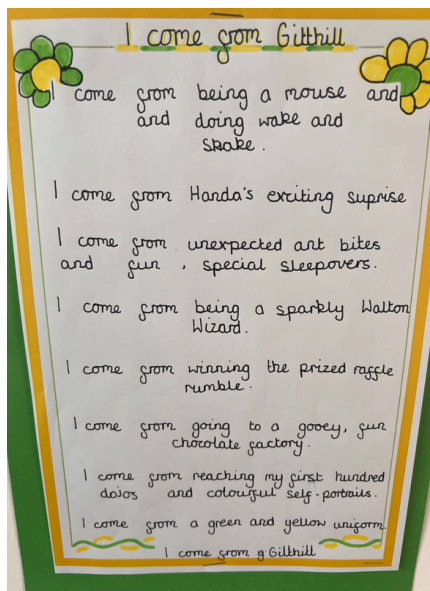 I come from Gilthill
I come from being a mouse and
and doing wake and
shake.
I come from Handa's exciting suprise
I come from unexpected ant bites
and fun, special sleepovers.
I come from being a sparkly Walton
Wizard.
I come from winning the prized raffle
rumble.
I come from going to a gooey, fun
chocolate factory.
I come from reaching my first hundred
dojos and colourful self-portraits.
I come from a green and yellow uniform.
I come from g Gilthill